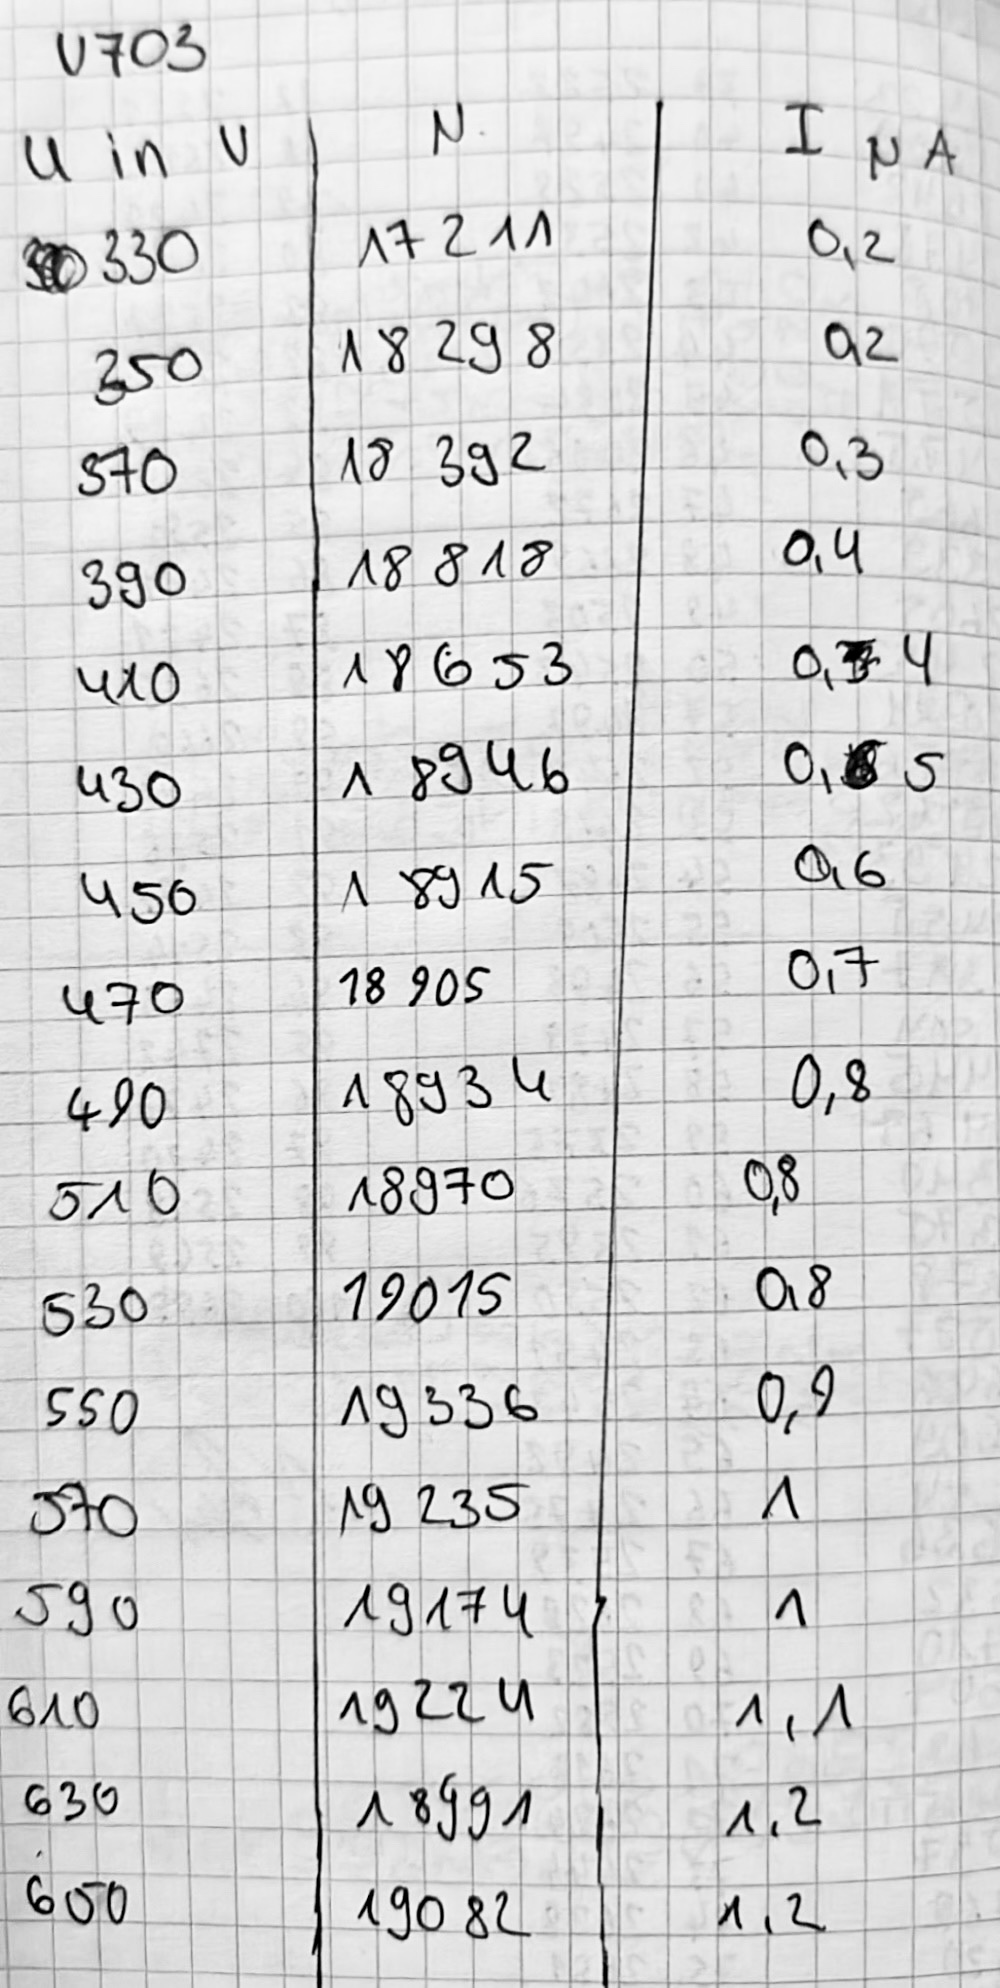 V703
U in V N. I µA
330 17211 0,2
350 18298 0,2
370 18392 0,3
390 18818 0,4
410 18653 0,4
430 18946 0,5
450 18915 0,6
470 18905 0,7
490 18934 0,8
510 18970 0,8
530 19015 0,8
550 19336 0,9
570 19235 1
590 19174 1
610 19224 1,1
630 18991 1,2
650 19082 1,2